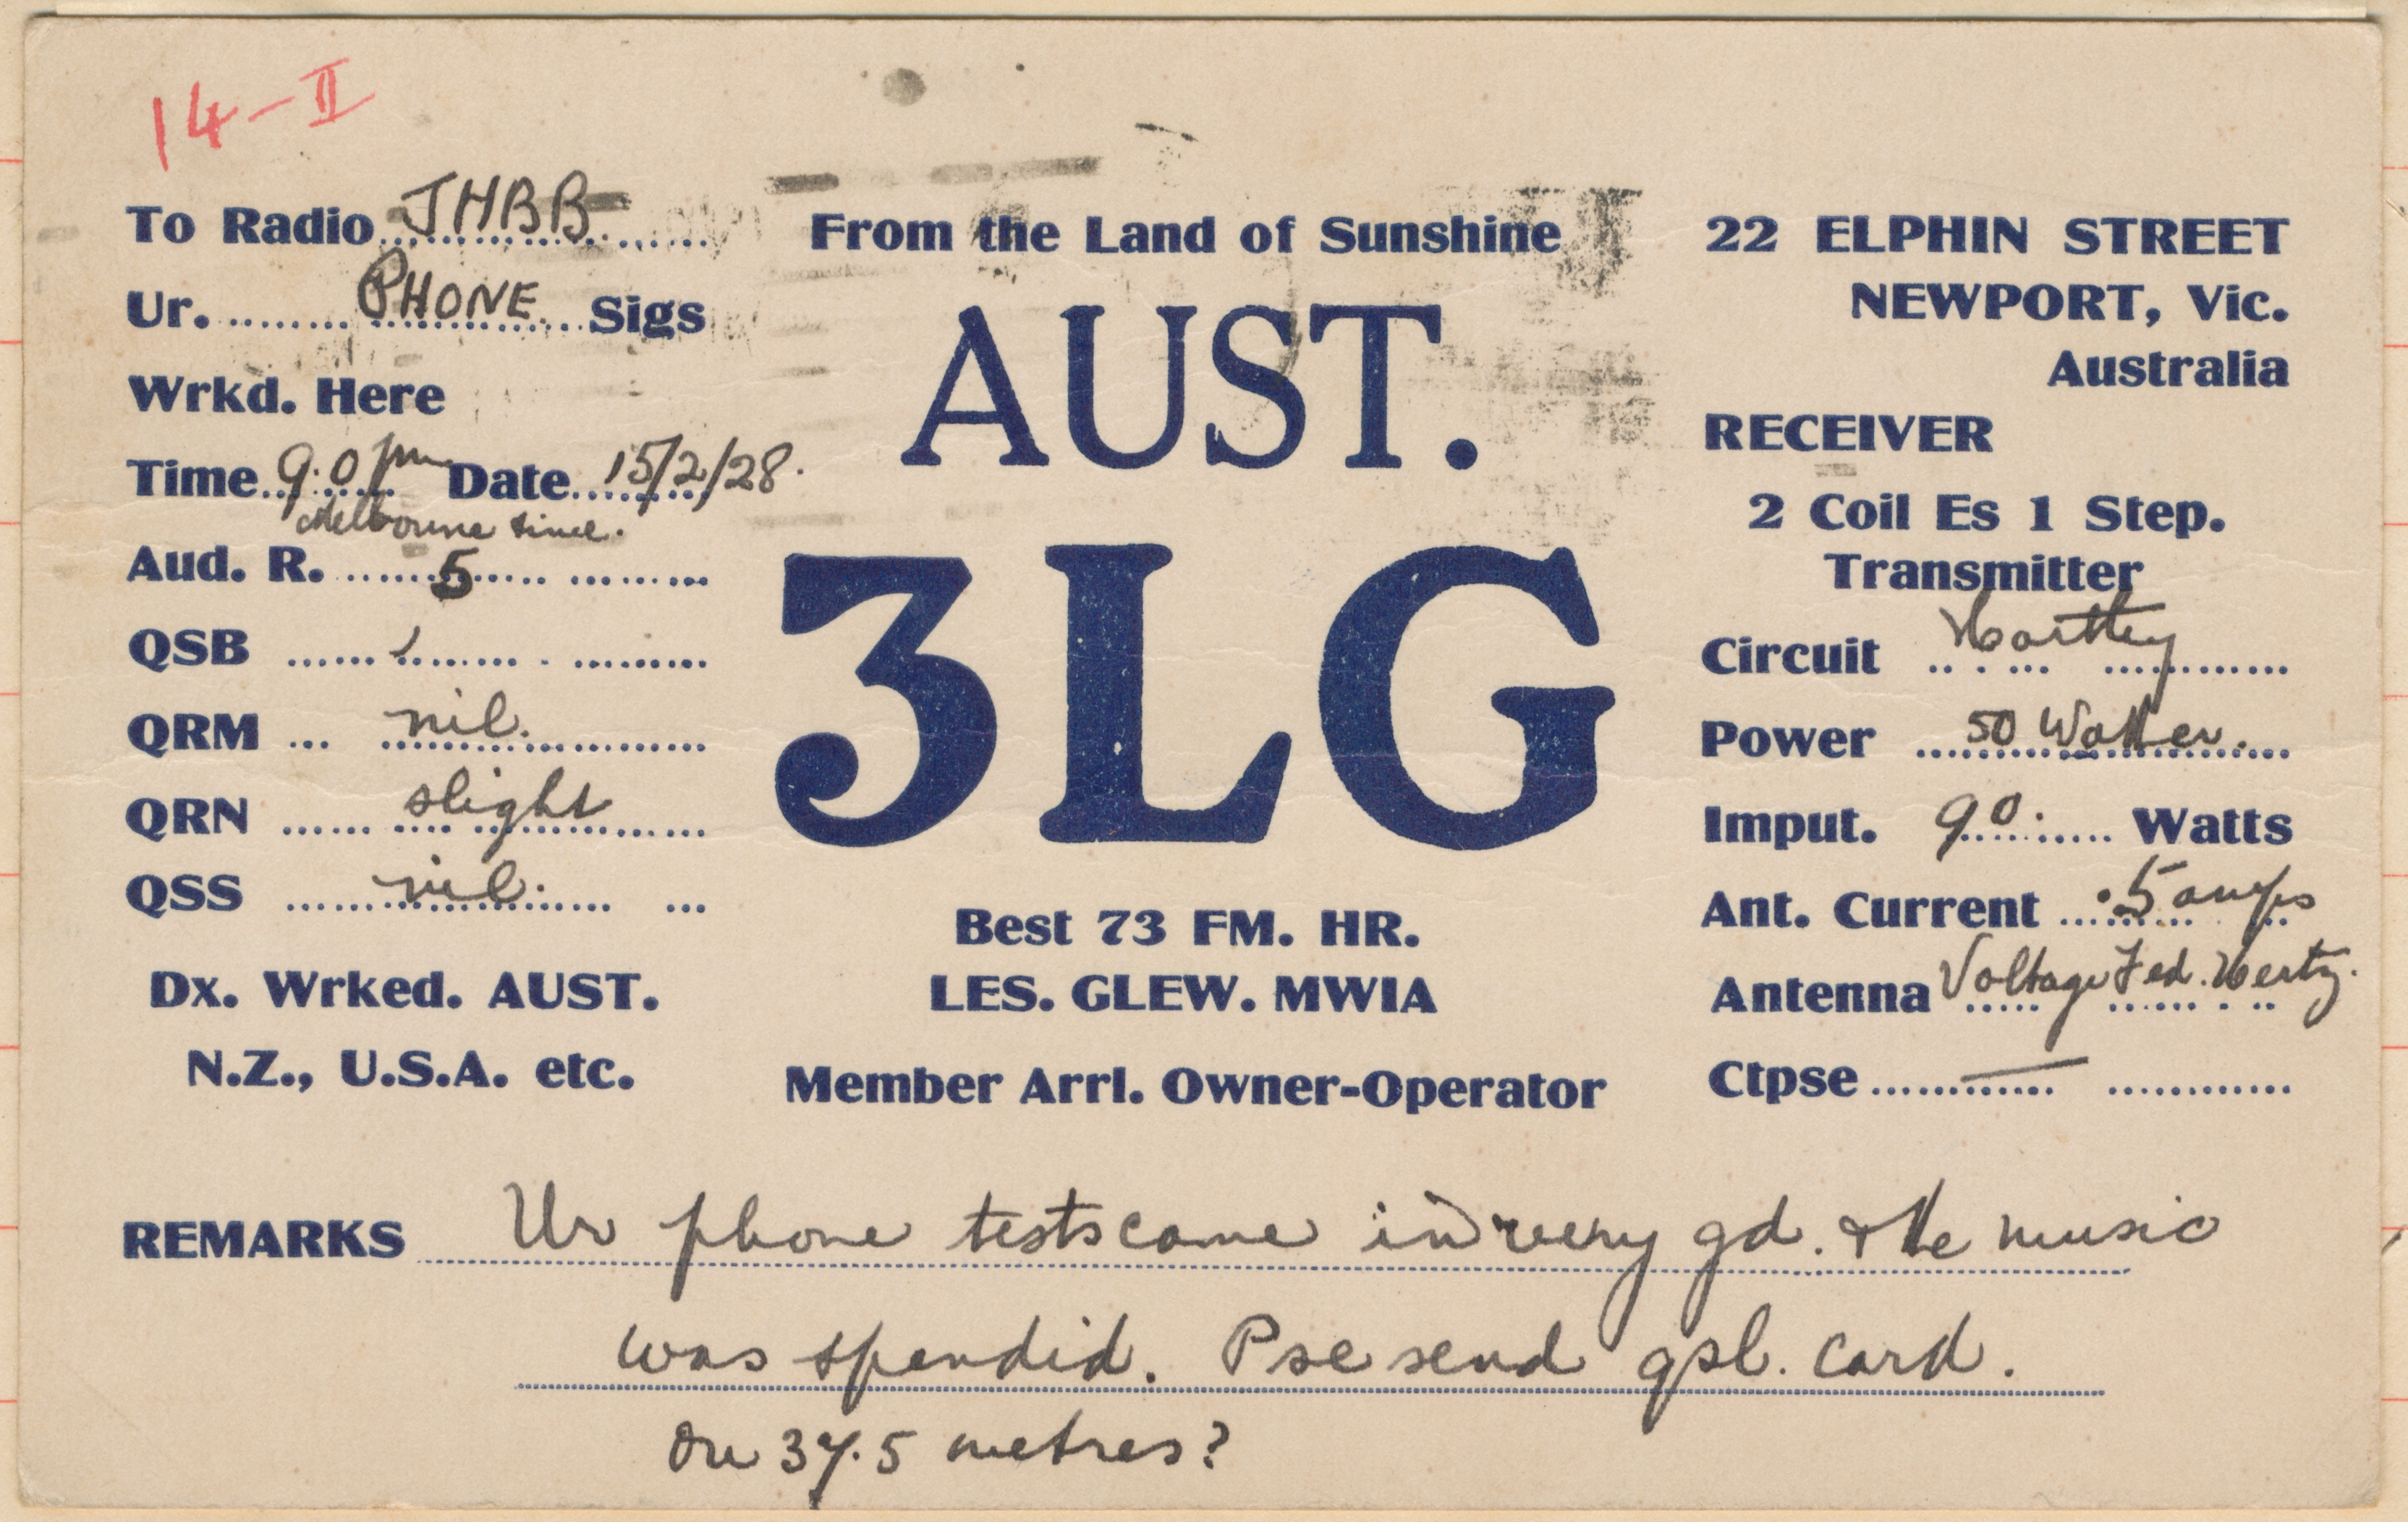 14-II
To Radio JHBB.
Ur. PHONE. Sigs
Wrkd. Here
Time 9.0 pm Date 15/2/28.
Melbourne time.
Aud. R. 5
QSB
QRM nil.
QRN slight
QSS nil.
Dx. Wrked. AUST.
N.Z., U.S.A. etc.
From the Land of Sunshine
AUST.
3LG
Best 73 FM. HR.
LES. GLEW. MWIA
Member Arrl. Owner-Operator
22 ELPHIN STREET
NEWPORT, Vic.
Australia
RECEIVER
2 Coil Es 1 Step.
Transmitter
Circuit Hartley
Power 50 Watter.
Imput. 90. Watts
Ant. Current .5 amps
Antenna Voltage Fed. Hertz.
Ctpse —
REMARKS Ur phone tests came in very gd. & the music
was spendid. Pse send qsl. card.
On 37.5 metres?